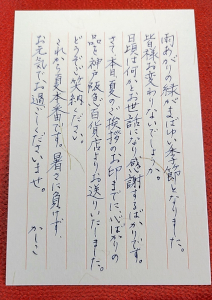 雨あがりの緑がまばゆい季節となりました。
皆様お変わりないでしょうか。
日頃は何かとお世話になり感謝するばかりです。
さて本日夏のご挨拶のお印までに心ばかりの
品を神戸阪急百貨店よりお送りいたしました。
どうぞご笑納ください。
これから夏本番です。暑さに負けず
お元気でお過ごしくださいませ。
かしこ